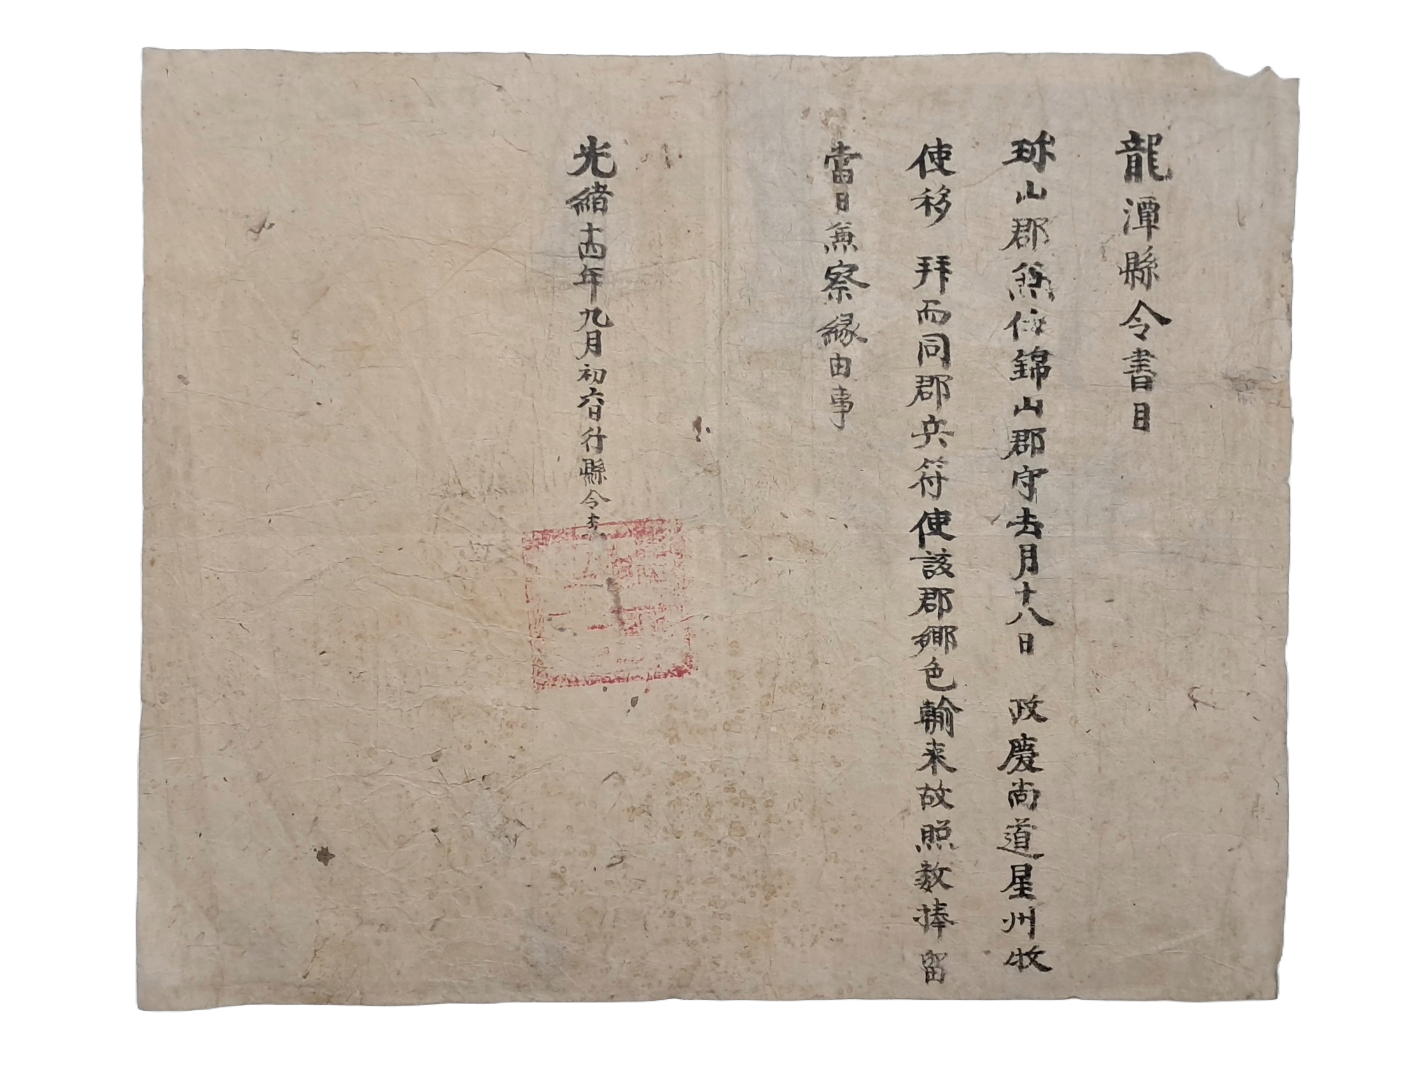 龍潭縣令書目
珎山郡兼任錦山郡守去月十八日 政慶尚道星州牧
使移 拜而同郡兵符使該郡鄕色輸来故照数捧留
當日兼察緣由事
光緒十四年九月初六日行縣令李